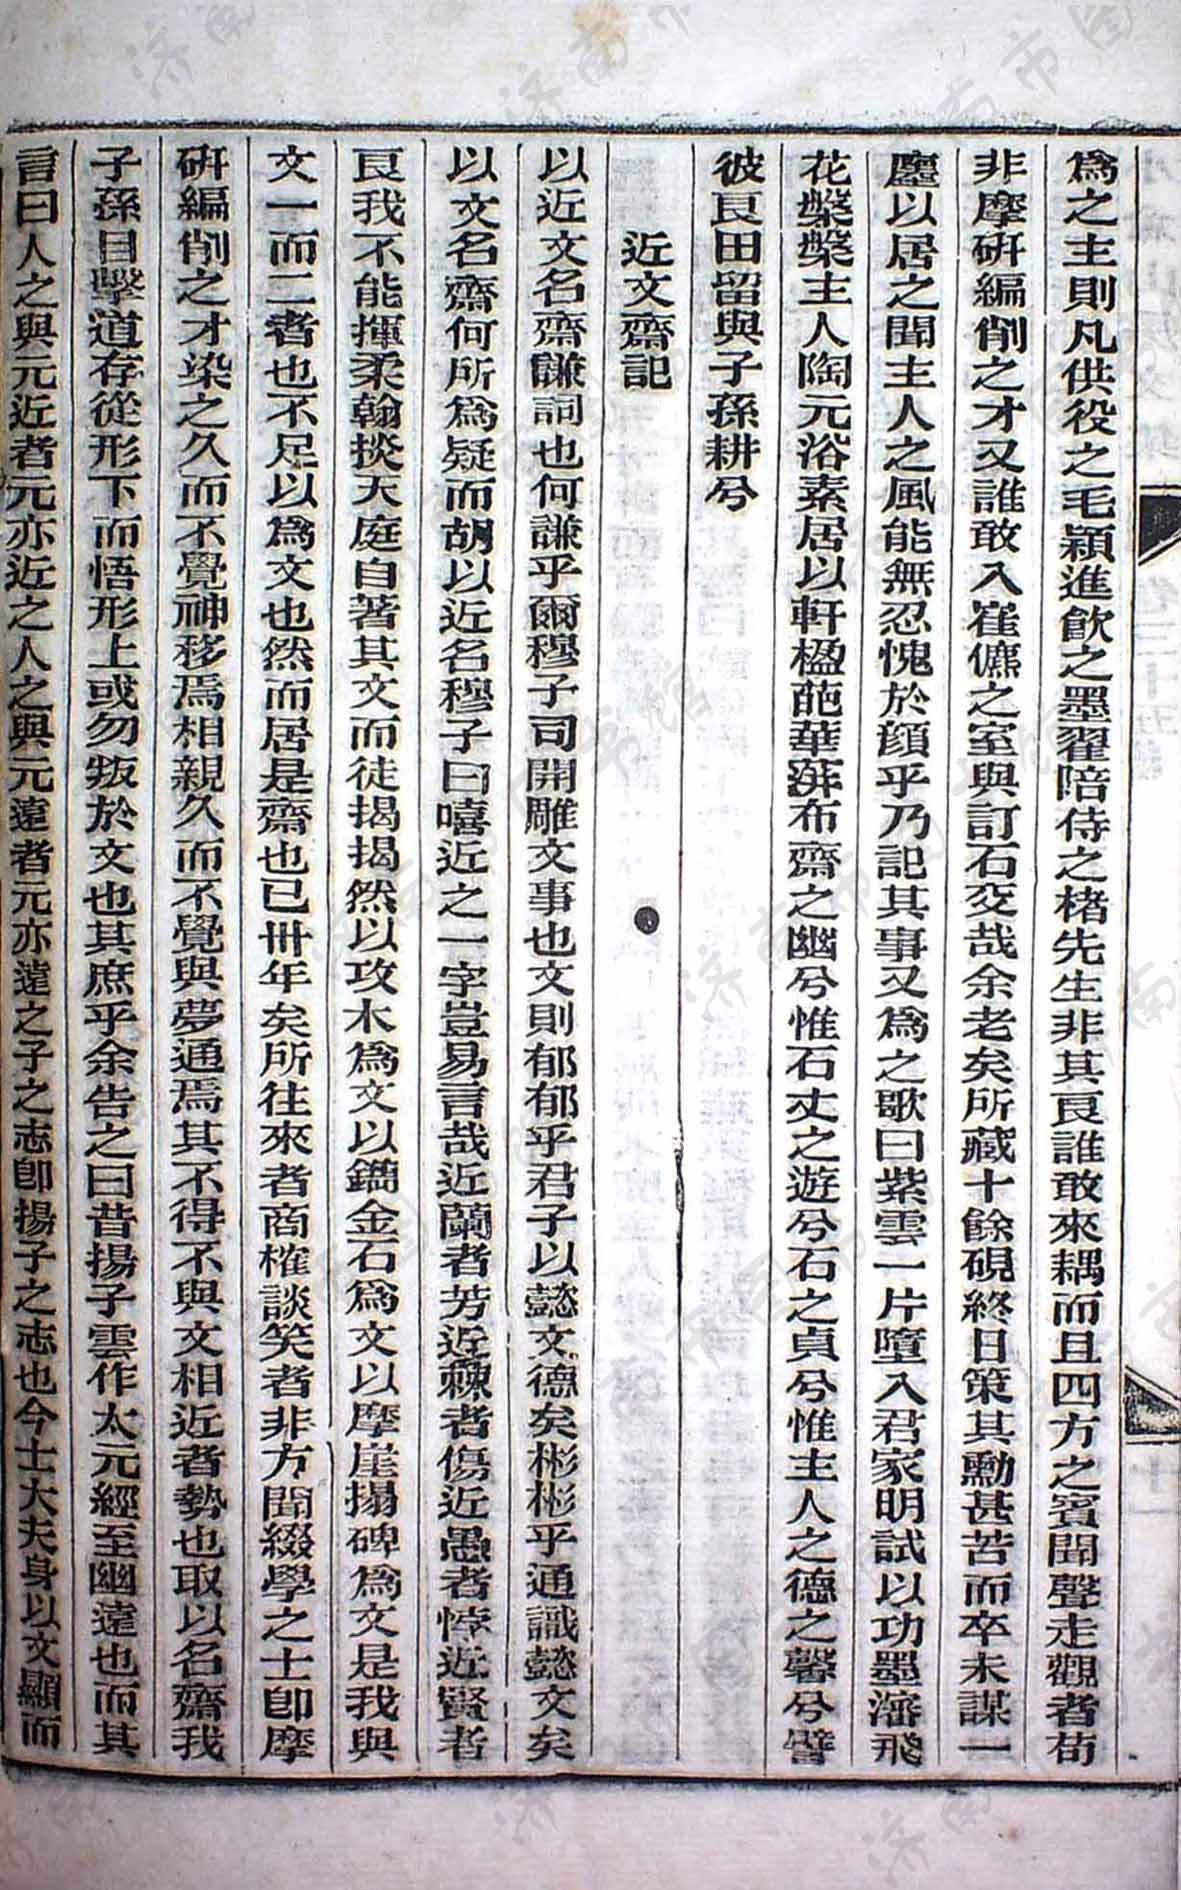 爲之主則凡供役之毛穎進飲之墨翟陪侍之楮先生非其良誰敢來耦而且四方之賓聞聲走觀者苟
非摩硏編削之才又誰敢入崔儦之室與訂石交哉余老矣所藏十餘硯終日策其勳甚苦而卒未謀一
廛以居之聞主人之風能無忍愧於顔乎乃記其事又爲之歌曰紫雲一片墮入君家明試以功墨瀋飛
花槃槃主人陶元浴素居以軒楹葩華蓱布齋之幽兮惟石丈之遊兮石之貞兮惟主人之德之馨兮譬
彼良田留與子孫耕兮
近文齋記
以近文名齋謙詞也何謙乎爾穆子司開雕文事也文則郁郁乎君子以懿文德矣彬彬乎通識懿文矣
以文名齋何所爲疑而胡以近名穆子曰嘻近之一字豈易言哉近蘭者芳近棘者傷近愚者悖近賢者
良我不能揮柔翰掞天庭自著其文而徒揭揭然以攻木爲文以鐫金石爲文以摩崖搨碑爲文是我與
文一而二者也不足以爲文也然而居是齋也已卅年矣所往來者商榷談笑者非方聞綴學之士卽摩
硏編削之才染之久而不覺神移焉相親久而不覺與夢通焉其不得不與文相近者勢也取以名齋我
子孫目擊道存從形下而悟形上或勿叛於文也其庶乎余告之曰昔揚子雲作太元經至幽遠也而其
言曰人之與元近者元亦近之人之與元遠者元亦遠之子之志卽揚子之志也今士大夫身以文顯而